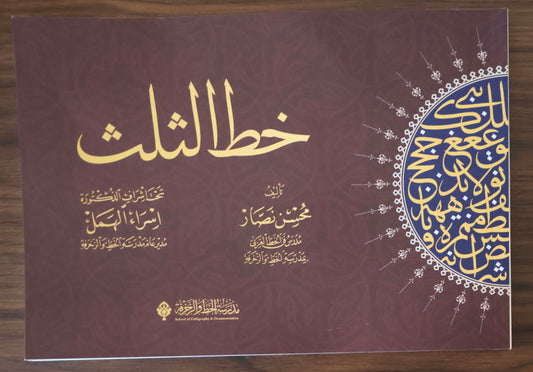 خط الثلث
تأليف
محسن نصار
مدرس فن الخط العربي
بمدرسة الخط والزخرفة
تحت اشراف الدكتورة
اسراء الهمل
مدير عام مدرسة الخط والزخرفة
مدرسة الخط والزخرفة
School of Calligraphy & Ornamentation